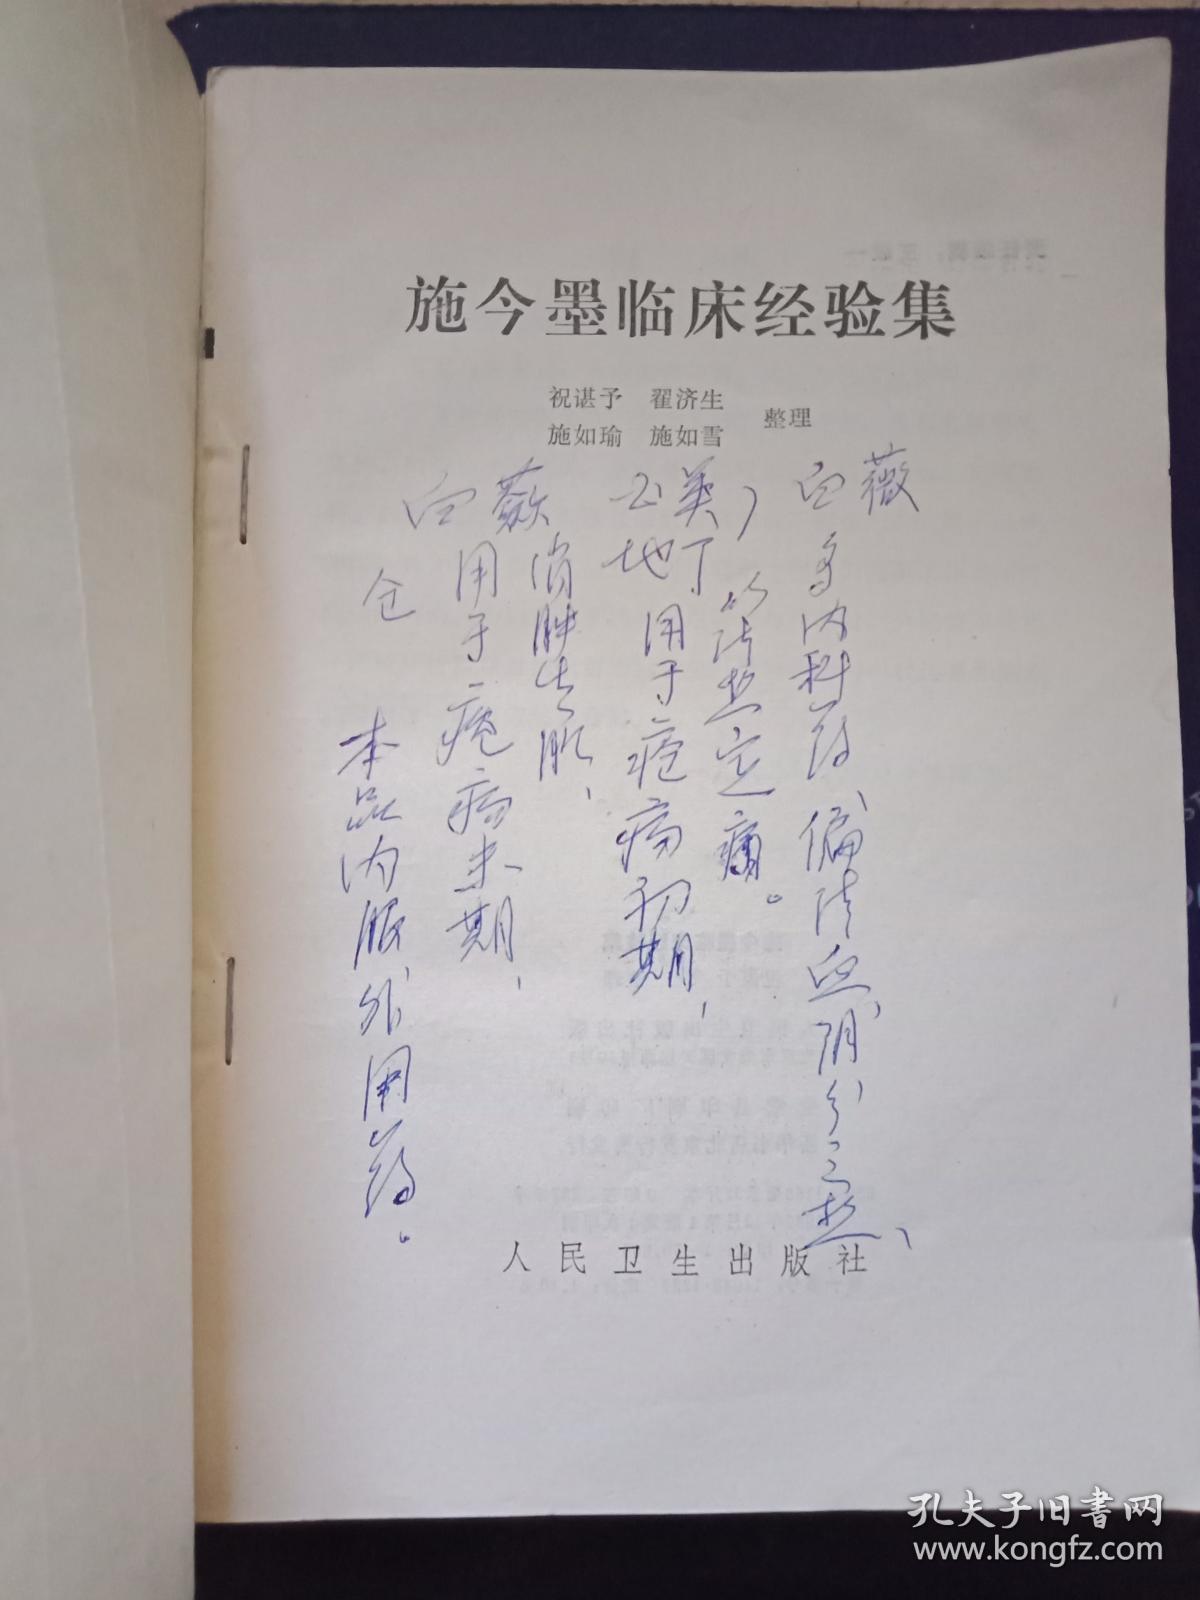 施今墨临床经验集
祝谌予 翟济生
施如瑜 施如雪
整理
白薇
多内科药、偏清血、阴分之热、
以清热定痛。
地丁用于疮疡初期、
白蔹
消肿生肌、
用于疮疡末期、
本品内服外用药。
人民卫生出版社
孔夫子旧书网
www.kongfz.com